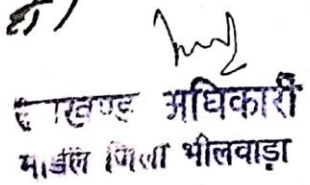 खण्ड अधिकारी
माण्डल जिला भीलवाड़ा